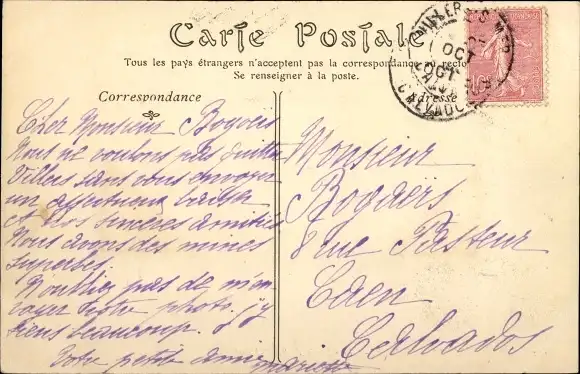 Carte Postale
Tous les pays étrangers n'acceptent pas la correspondance au recto
Se renseigner à la poste.
Correspondance
Adresse
VILLERS S MER
1 OCT
CALVADOS
Cher Monsieur Bogaers
Nous ne voulons pas quitter
Villers sans vous envoyer
un affectueux baiser
et nos sincères amitiés
Nous avons des mines
superbes.
N'oubliez pas de m'en
voyer votre photo. j'y
tiens beaucoup.
Votre petite amie
Monsieur
Bogaërs
8 rue Pasteur
Caen
Calvados